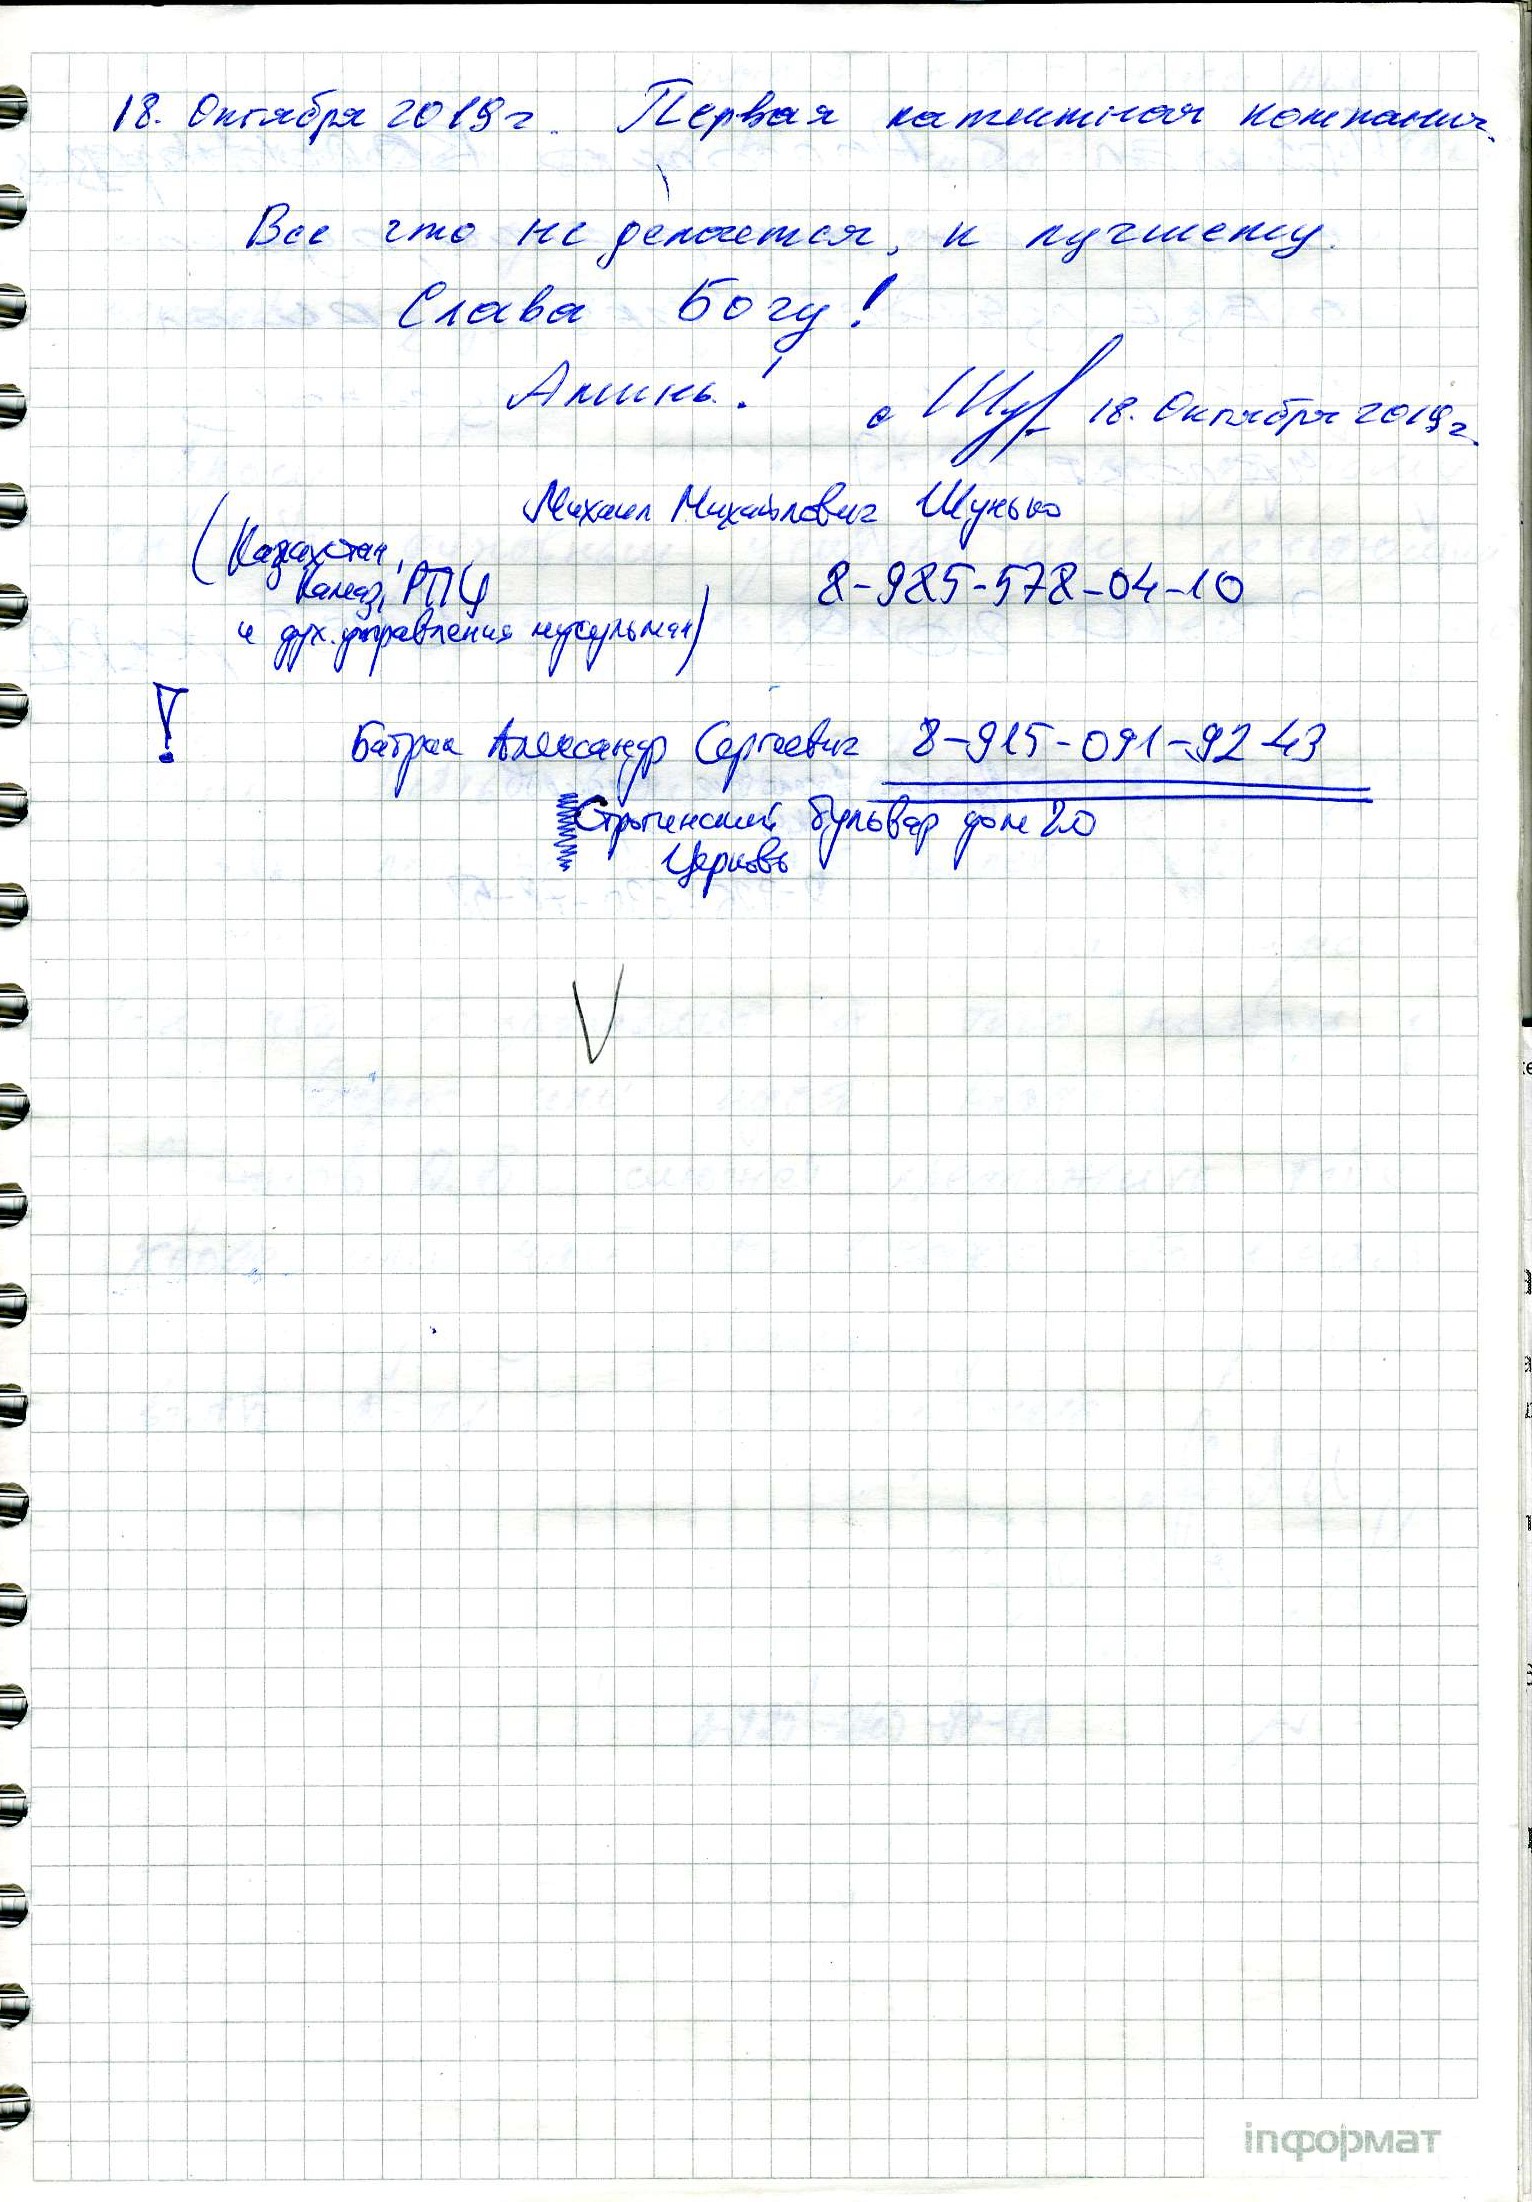 18. Октября 2019 г. Первая платежная компания.
Все что не делается, к лучшему.
Слава Богу!
Аминь!
18. Октября 2019 г.
Михаил Михайлович Шунько
(Казахстан,
Камаз, РПЦ
и дух. управления мусульман)
8-985-578-04-10
! Батрак Александр Сергеевич 8-915-091-92-43
Строгинский бульвар дом 20
Церковь
V
inформат